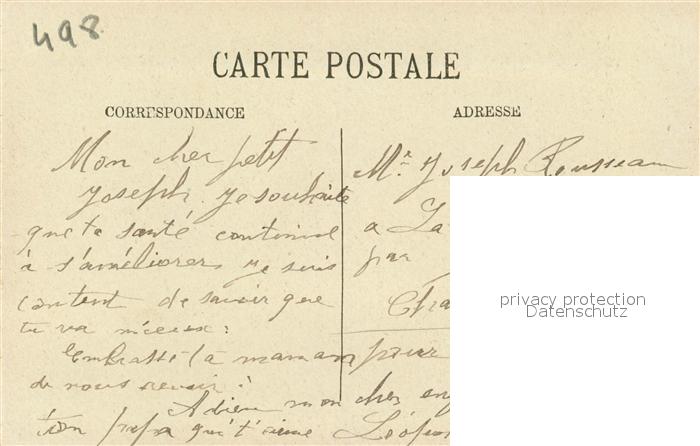 498
CARTE POSTALE
CORRESPONDANCE
ADRESSE
Mon cher petit
Joseph. Je souhaite
que ta santé continue
à s'améliorer, je suis
content de savoir que
tu va mieux:
Embrasse ta maman pour
de nous revoir!
Adieu mon cher
ton papa qui t'aime
Mr. Joseph Rousseau
a La
par
Cha
privacy protection
Datenschutz